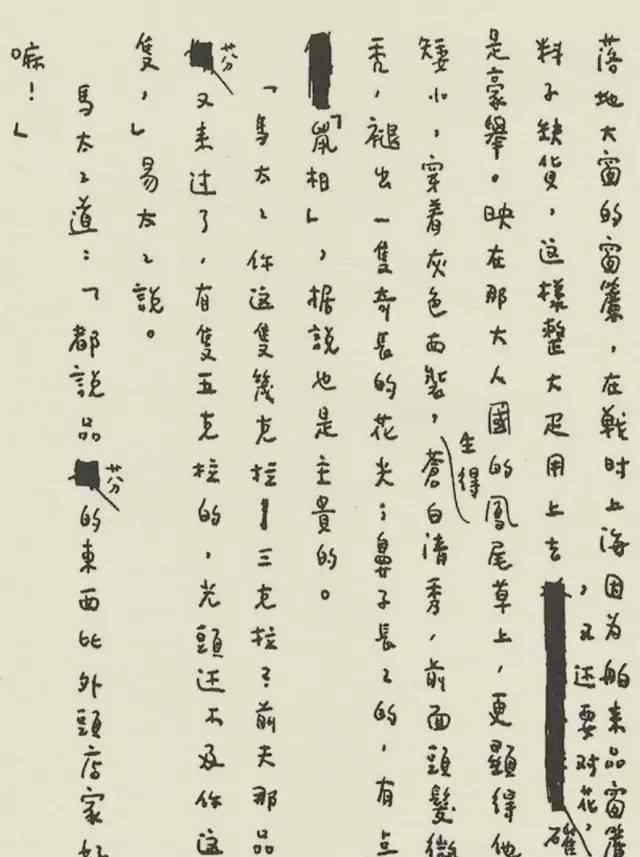 落地大窗的窗簾，在戰时上海因为舶来品窗簾
料子缺貨，这樣整大疋用上去，又还要对花，確
是豪舉。映在那大人國的鳳尾草上，更顯得他
矮小，穿着灰色西裝，生得蒼白清秀，前面頭髮微
秃，褪出一隻奇長的花尖；鼻子長々的，有点
「鼠相」，据說也是主貴的。
「馬太々你这隻幾克拉—三克拉？前天那品
芬又来过了，有隻五克拉的，光頭还不及你这
隻，」易太々說。
馬太々道：「都說品芬的東西比外頭店家好
嘛！」